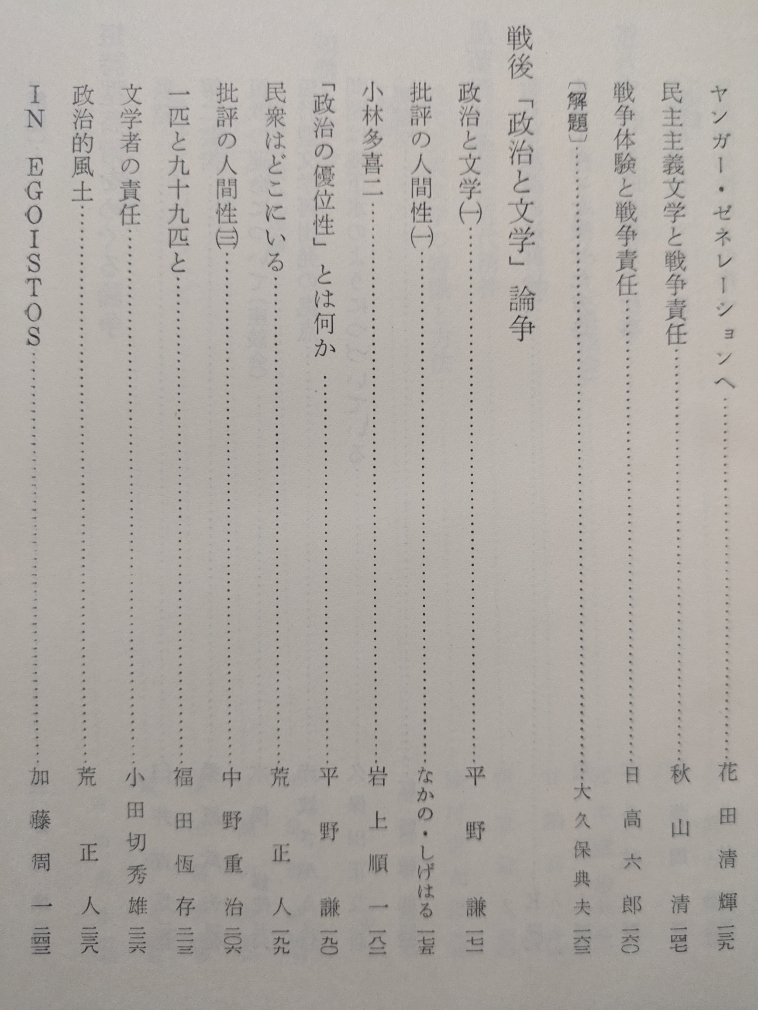 ヤンガー・ゼネレーションへ……花田清輝 一三九
民主主義文学と戦争責任……秋山清 一四七
戦争体験と戦争責任……日高六郎 一六〇
〔解題〕……大久保典夫 一六三
戦後「政治と文学」論争
政治と文学㈠……平野謙 一七一
批評の人間性㈠……なかの・しげはる 一七五
小林多喜二……岩上順一 一八二
「政治の優位性」とは何か……平野謙 一九〇
民衆はどこにいる……荒正人 一九九
批評の人間性㈢……中野重治 二〇六
一匹と九十九匹と……福田恆存 二一三
文学者の責任……小田切秀雄 二二六
政治的風土……荒正人 二三八
IN EGOISTOS……加藤周一 二四三